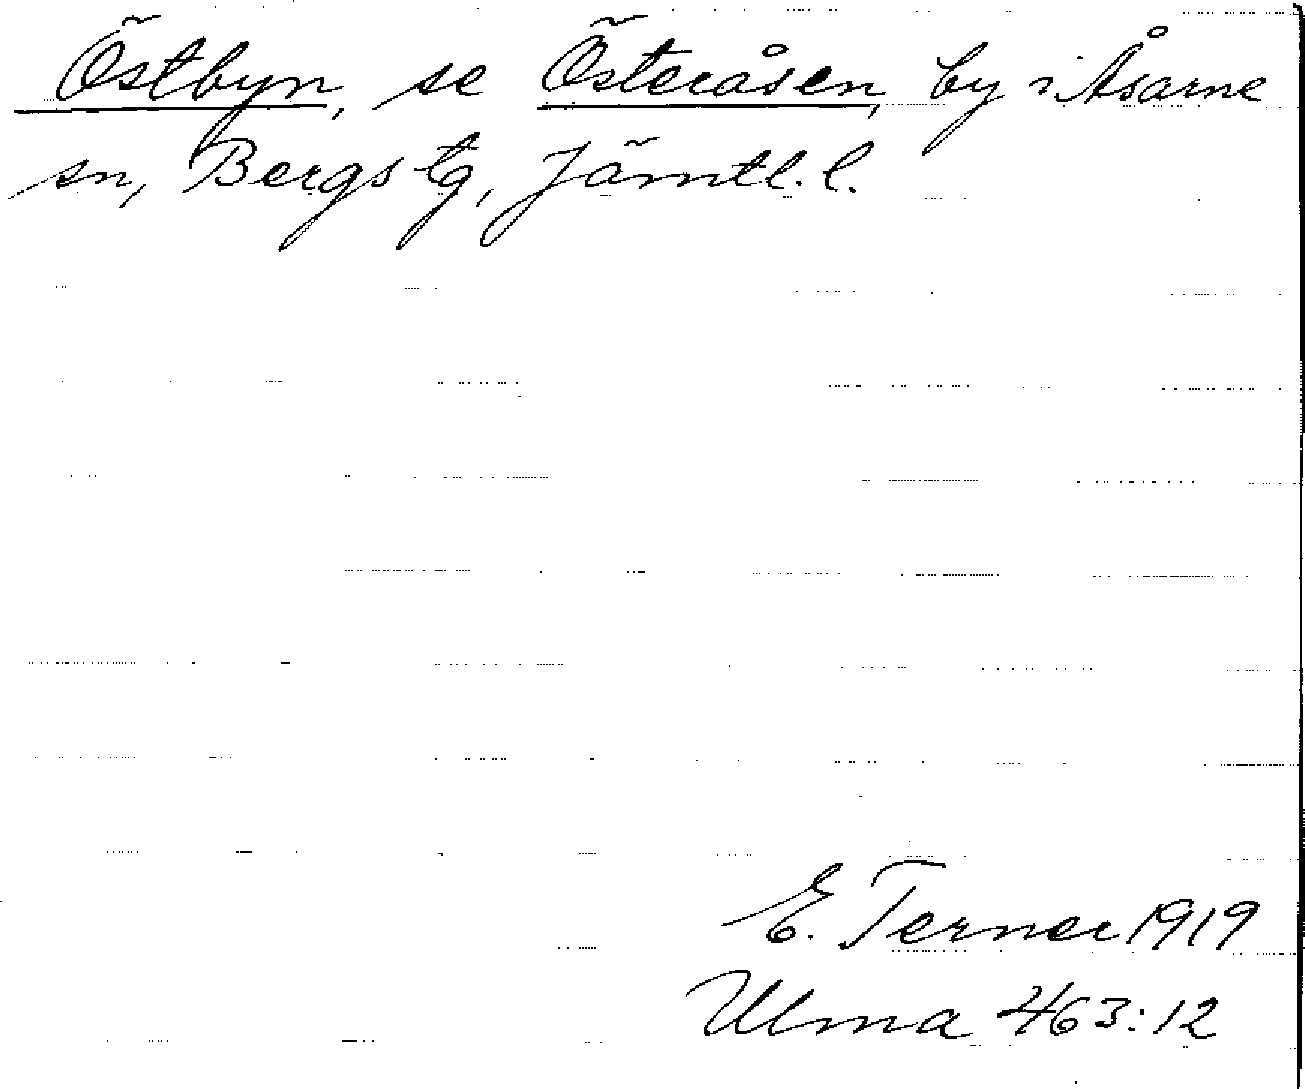 Östbyn, se Österåsen, by i Åsarne
sn, Bergs tg, Jämtl. l.
E. Terner 1919
Ulma 463:12